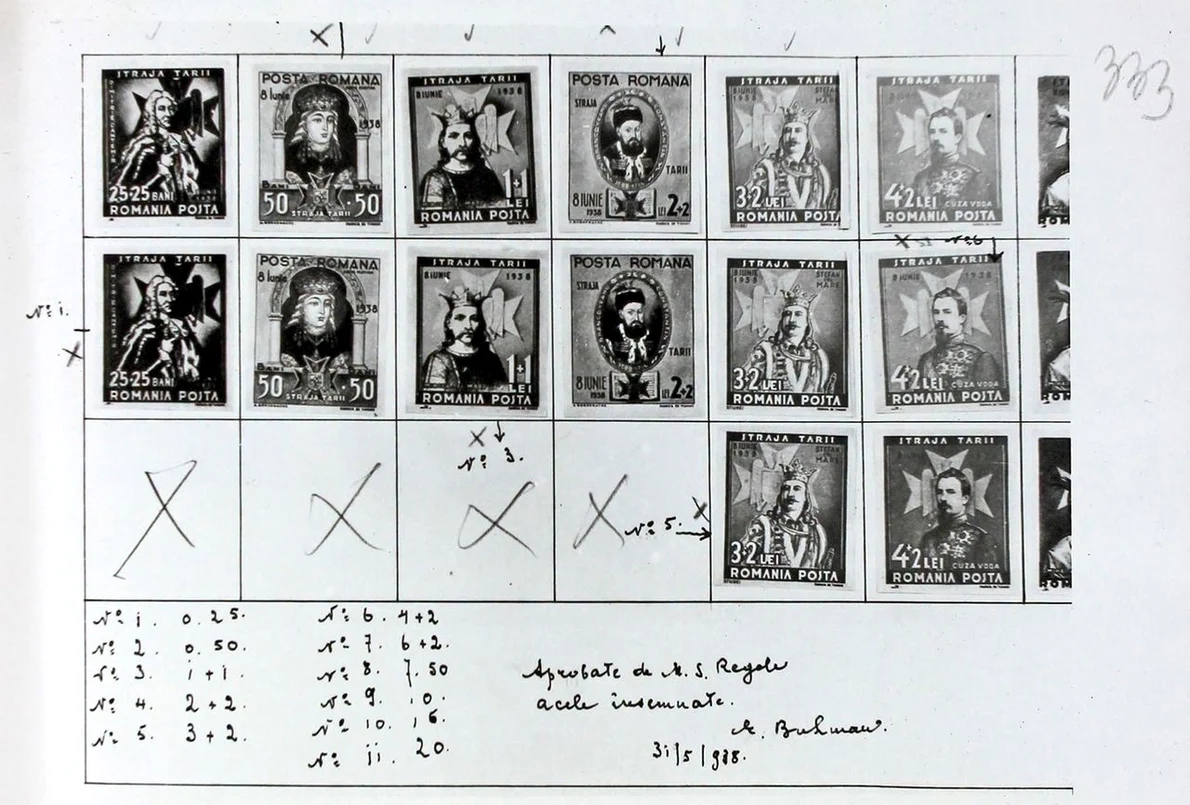 333
STRAJA TARII
25+25 BANI
ROMANIA POSTA
POSTA ROMANA
8 Iunie
1938
BANI BANI
50 + 50
STRAJA TARII
STRAJA TARII
8 IUNIE 1938
1+1
LEI
ROMANIA POSTA
POSTA ROMANA
STRAJA
TARII
8 IUNIE
1938
LEI 2+2
STRAJA TARII
8 IUNIE
1938
STEFAN
CEL
MARE
3+2 LEI
ROMANIA POSTA
STRAJA TARII
8 IUNIE 1938
4+2 LEI
CUZA VODA
ROMANIA POSTA
Nº 6
Nº 1.
STRAJA TARII
25+25 BANI
ROMANIA POSTA
POSTA ROMANA
8 Iunie
1938
BANI BANI
50 + 50
STRAJA TARII
STRAJA TARII
8 IUNIE 1938
1+1
LEI
ROMANIA POSTA
POSTA ROMANA
STRAJA
TARII
8 IUNIE
1938
LEI 2+2
STRAJA TARII
8 IUNIE
1938
STEFAN
CEL
MARE
3+2 LEI
ROMANIA POSTA
STRAJA TARII
8 IUNIE 1938
4+2 LEI
CUZA VODA
ROMANIA POSTA
Nº 3.
Nº 5.
STRAJA TARII
8 IUNIE
1938
STEFAN
CEL
MARE
3+2 LEI
ROMANIA POSTA
STRAJA TARII
4+2 LEI
CUZA VODA
ROMANIA POSTA
Nº 1. 0.25.
Nº 2. 0.50.
Nº 3. 1+1.
Nº 4. 2+2.
Nº 5. 3+2.
Nº 6. 4+2
Nº 7. 6+2.
Nº 8. 7.50
Nº 9. 10.
Nº 10. 16.
Nº 11. 20.
Aprobate de M. S. Regele
acele insemnate.
31/5/938.